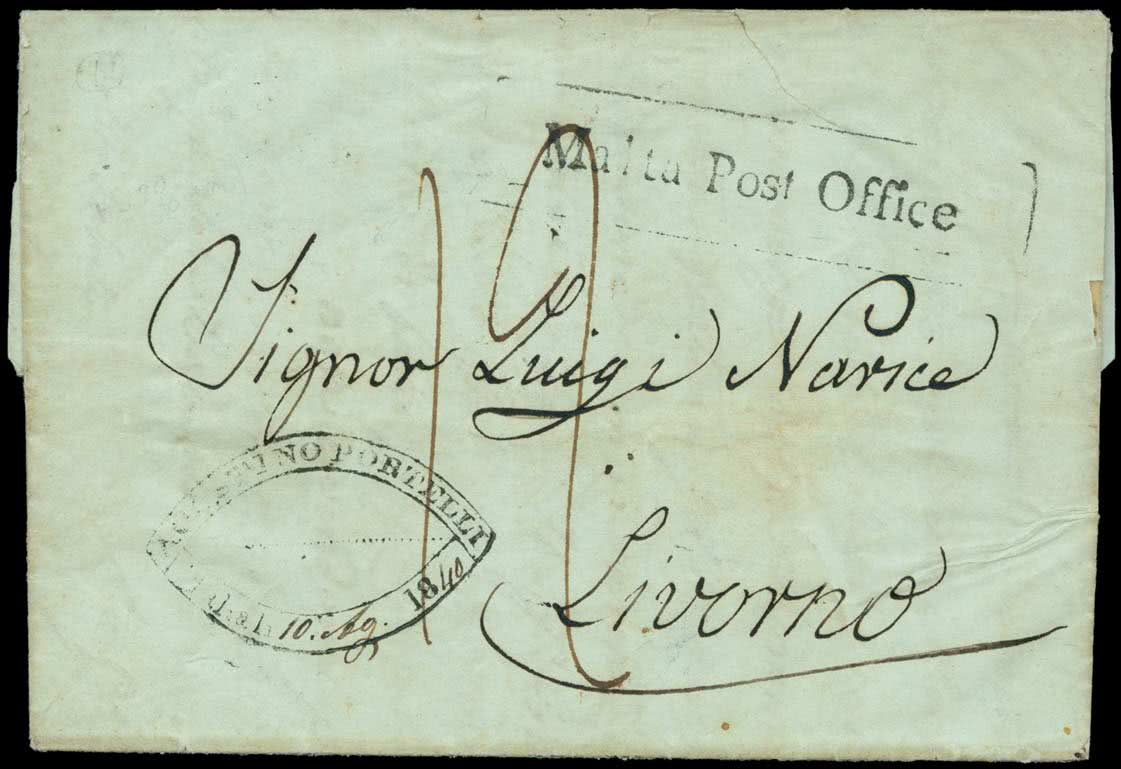 Malta Post Office
12
Signor Luigi Narice
Livorno
AGOSTINO PORTELLI
10. Ag. 1840